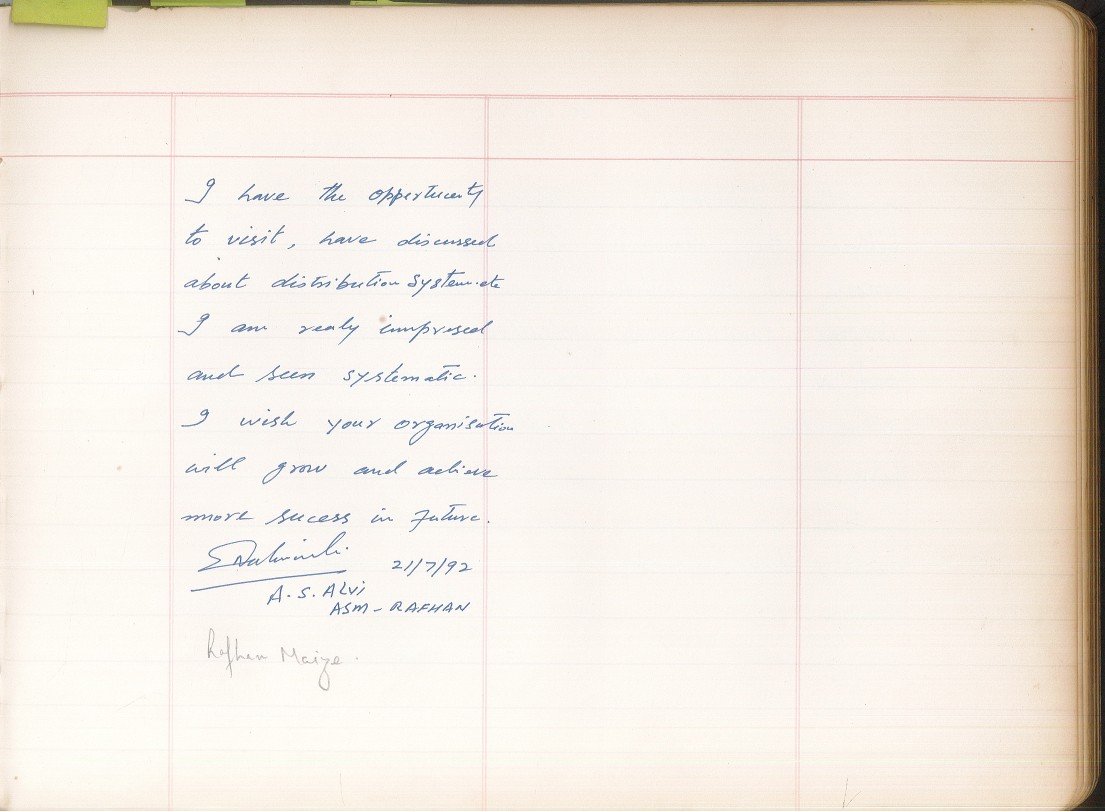 I have the oppertunity
to visit, have discussed
about distribution system etc
I am realy impresed
and seen systematic.
I wish your organisation
will grow and achieve
more sucess in future.
21/7/92
A. S. ALVI
ASM - RAFHAN
Rafhan Maize.